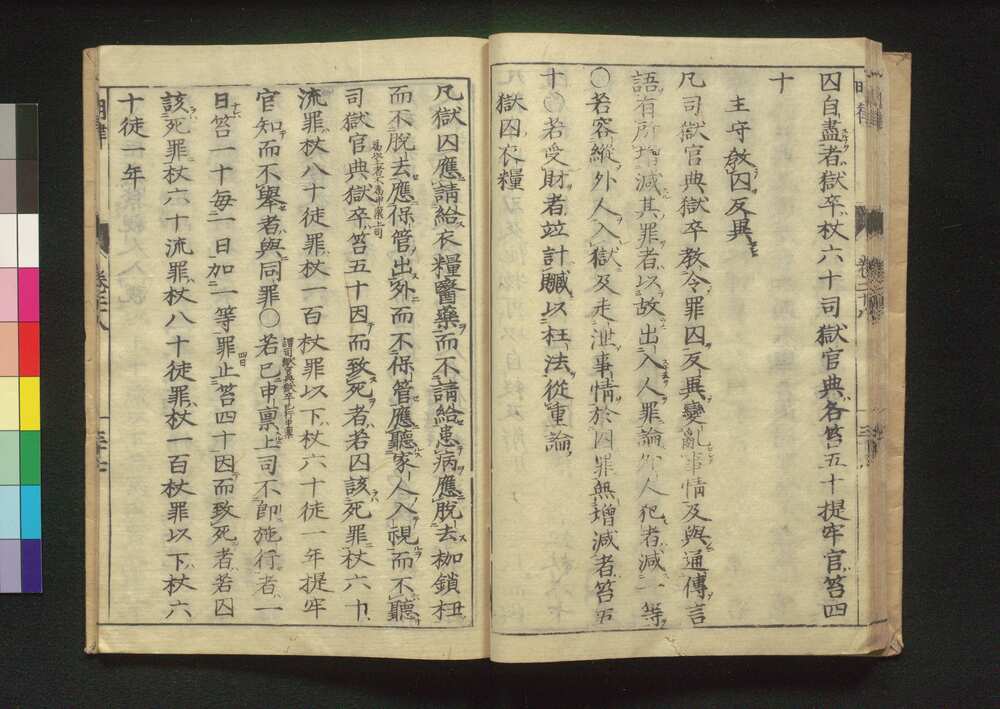 囚自盡者獄卒杖六十司獄官典各笞五十提牢官笞四
十
主守教囚反異
凡司獄官典獄卒教令罪囚反異變亂事情及與通傳言
語有所增減其罪者以故出入人罪論外人犯者減一等
○若容縱外人入獄及走泄事情於囚罪無增減者笞五
十○若受財者竝計贓以枉法從重論
獄囚衣糧
凡獄囚應請給衣糧醫藥而不請給患病應脫去枷鎖杻
而不脫去應保管出外而不保管應聽家人入視而不聽
司獄官典獄卒笞五十因而致死者若囚該死罪杖六十
流罪杖八十徒罪杖一百杖罪以下杖六十徒一年提牢
官知而不舉者與同罪○若已申稟上司不即施行者一
日笞一十每一日加一等罪止笞四十因而致死者若囚
該死罪杖六十流罪杖八十徒罪杖一百杖罪以下杖六
十徒一年
明律